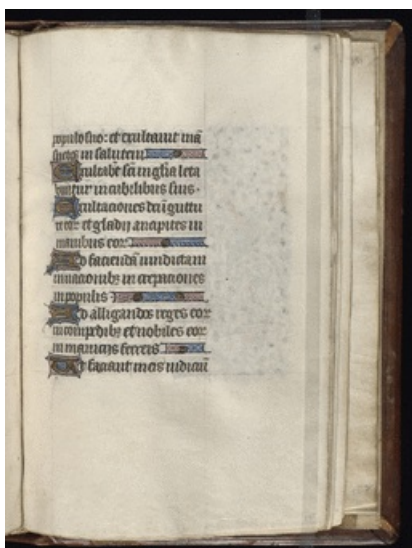 populo suo: et exultauit mā
suetos in salutem
Exultabūt sci in glīa leta
buntur in cubilibus suis.
Exultaciones dei ī guttu
re eoꝝ et gladij ancipites in
manibus eoꝝ
Ad faciendā uindictam
in nacionibꝫ increpaciones
in populis
Ad alligandos reges eoꝝ
in compedibꝫ et nobiles eoꝝ
in manicis ferreis
Ut faciant in eis iudiciū